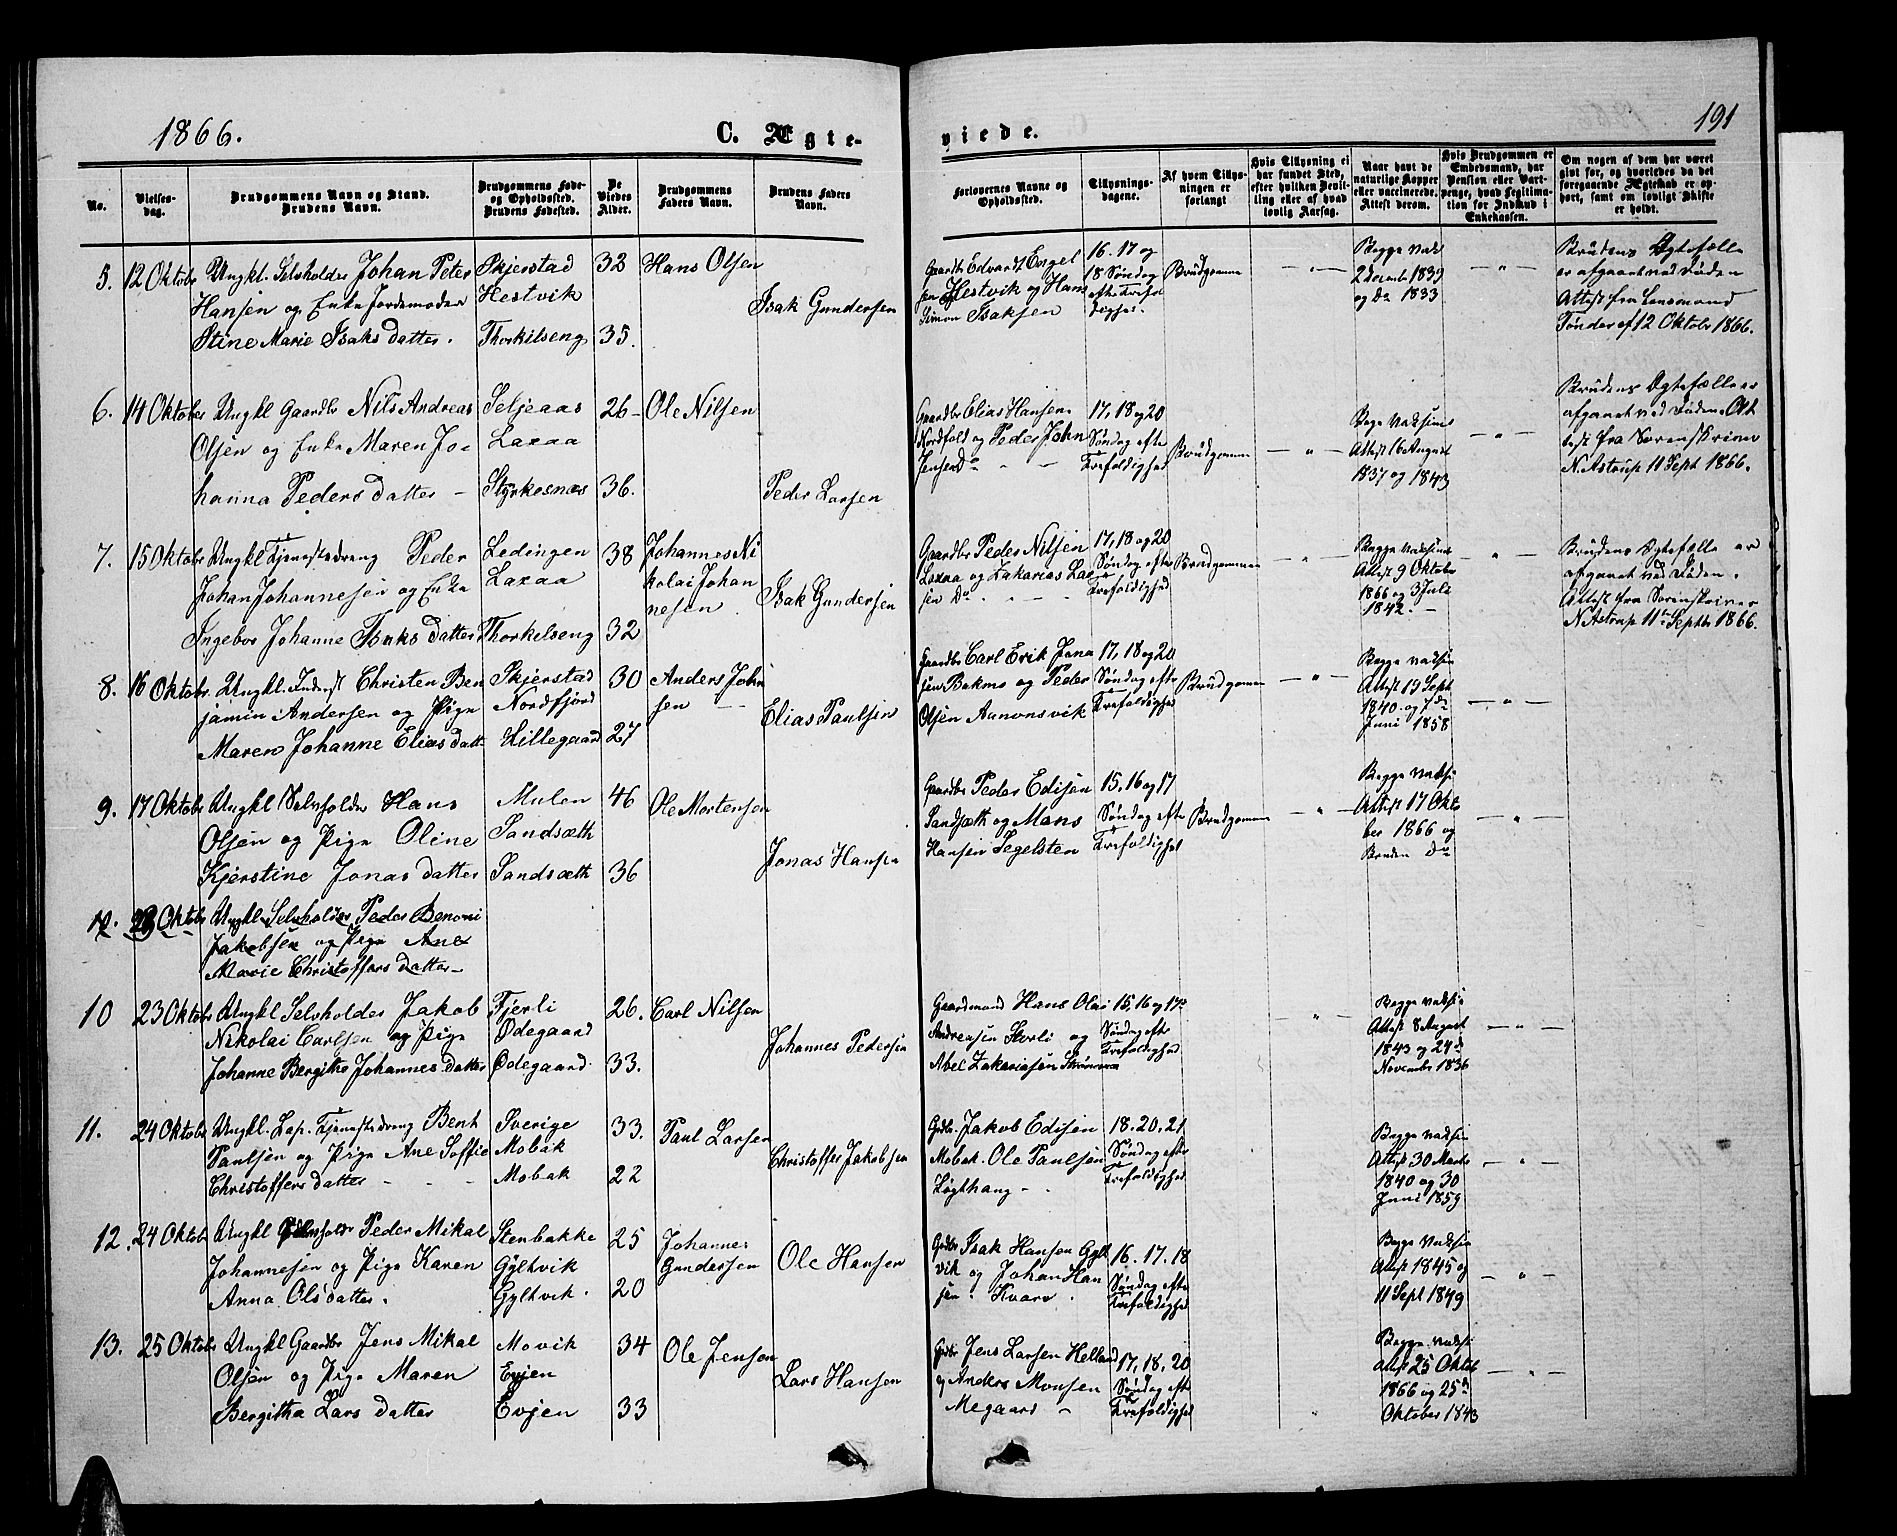 1866.
C. Ægte-
viede.
191
No.
Vielses-
dag.
Brudgommens Navn og Stand.
Brudens Navn.
Brudgommens Føde-
og Opholdssted.
Brudens Fødested.
De
Viedes
Alder.
Brudgommens
Faders Navn.
Brudens Faders
Navn.
Forlovernes Navne og
Opholdssted.
Tillysnings-
dagene.
Af hvem Tillys-
ningen er
forlangt
Hvis Tillysning ei
har fundet Sted,
efter hvilken Bevil-
ling eller af hvad
lovlig Aarsag.
Naar havt de
naturlige Kopper
eller vaccinerede.
Attest derom.
Hvis Brudgommen er
Embedsmand, har
Pension eller Vart-
penge, hvad Legitima-
tion for Indskud i
Enkekassen.
Om nogen af dem har været
gift før, og hvorledes da det
foregaaende Ægteskab er op-
hørt, samt om lovligt Skifte
er holdt.
5.
12 Oktobr
Ungkl. Selvholder Johan Peter
Hansen og Enke Jordemoder
Stine Marie Isaksdatter.
Skjerstad
Hestvik
Thorkilseng
32
35.
Hans Olsen
Isak Gundersen
Gaardbr Edvardt Engel
sen Hestvik og Hans
Simon Isaksen
16. 17 og
18 Søndag
efter Trefol
dighed.
Brudgommen
Begge vaks
2 Decemb 1839
og Do 1833
Brudens Ægtefælle
er afgaaet ved Døden
Attest fra Lensmand
Tønder af 12 Oktobr 1866.
6.
14 Oktober
Ungkl Gaardbr Nils Andreas
Olsen og Enke Maren Jo-
hanna Pedersdatter -
Seljeaas
Laxaa
Styrkesnæs
26-
36.
Ole Nilsen
Peder Larsen
Gaardbr Elias Hansen
Nordfold og Peder John
Jensen Do
17, 18 og 20
Søndag efter
Trefoldighed
Brudgommen
Bege Vaksine
Attest 16 August
1837 og 1843
Brudens Ægtefælle er
afgaaet ved Døden. At
test fra Sorenskriver
N. Astrup 11 Sept 1866.
7.
15 Oktobr
Ungkl Tjenestedreng Peder
Johan Johannesen og Enke
Ingebor Johanne Isaksdatter
Ledingen
Laxaa
Thorkelseng
38
32
Johannes Ni
kolai Johan
nesen
Isak Gundersen
Gaardbr Peder Nilsen
Laxaa og Zakarias Lar
sen Do
17, 18 og 20
Søndag efter
Trefoldighed
Brudgommen
Begge Vaksine
Attest 9 Oktober
1866 og 3 Juli
1842. -
Brudens Ægtefælle er
afgaaet ved Døden.
Attest fra Sorenskriver
N. Astrup 11te Septbr 1866.
8.
16 Oktobr.
Ungkl. Inderst Christen Ben
jamin Andersen og Pige
Maren Johanne Eliasdatt
Skjerstad
Nordfjord
Lillegaard
30
27
Anders John
sen
Elias Paulsen
Gaardbr Carl Erik Jona
sen Bakmo og Peder
Olsen Aanonsvik
17, 18 og 20
Søndag efter
Trefoldighed
Brudgommen
Begge vaksin
Attest 19 Sept
1840. og 7de
Juni 1858
9.
17 Oktobr
Ungkl Selvfolder Hans
Olsen og Pige Oline
Kjerstine Jonasdatter
Mulen
Sandsæth
Sandsæth
46
36
Ole Mortensen
Jonas Hansen
Gaardbr Peder Edisen
Sandsæth og Mons
Hansen Segelsten
15, 16 og 17
Søndag efter
Trefoldighed
Brudgommen
Begge vaksi
Attest 17 Okto
ber 1866 og
Bruden do
10.
23 Oktobr
Ungkl Selvholder Peder Benoni
Jakobsen og Pige Ane
Marie Christoffersdatter-
10
23 Oktobr
Ungkl Selvholder Jakob
Nikolai Carlsen og Pige
Johanne Bergithe Johannesdatter
Fjerli
Ødegaard
Ødegaard
26.
33.
Carl Nilsen
Johannes Pedersen
Gaardmand Hans Olai
Andreasen Storli og
Abel Zakariasen
15, 16 og 17de
Søndag efter
Trefoldighed
Begge vaksin
Attest 8 August
1843 og 24de
November 1836
11.
24 Oktobr
Ungkl. Lap. Tjenestedreng Bent
Paulsen og Pige Ane Soffie
Christoffersdatter
Sverige
Mobak
Mobak
33.
22
Paul Larsen
Christoffer Jakobsen
Grdbr. Jakob Edisen
Mobak. Ole Paulsen
Løgthaug
18. 20. 21
Søndag efter
Trefoldighed
Begge vaksin
Attest 30 Marts
1840 og 30
Juni 1859
12.
24 Oktobr
Ungkl Selvholder Peder Mikal
Johannesen og Pige Karen
Anna Olsdatter.
Stenbakke
Gyltvik
Gyltvik.
25
20
Johannes
Gundersen
Ole Hansen
Grdbr Isak Hansen Gylt
vik og Johan Han
sen. Kvarv.
16. 17. 18
Søndag efter
Trefoldighed
Begge Vaksin
Attest 1845 og
11 Sept 1849
13.
25 Oktobr
Ungkl Gaardbr Jens Mikal
Olsen og Pige Maren
Bergitha Larsdatter
Movik
Evjen
Evjen
34
33
Ole Jensen
Lars Hansen
Grdbr Jens Larsen Helland
og Anders Monsen
Megaard -
17, 18, 20
Søndag efter
Trefoldighed
Begge vaksi
Attest 25 Oktob
1866 og 25de
Oktober 1843